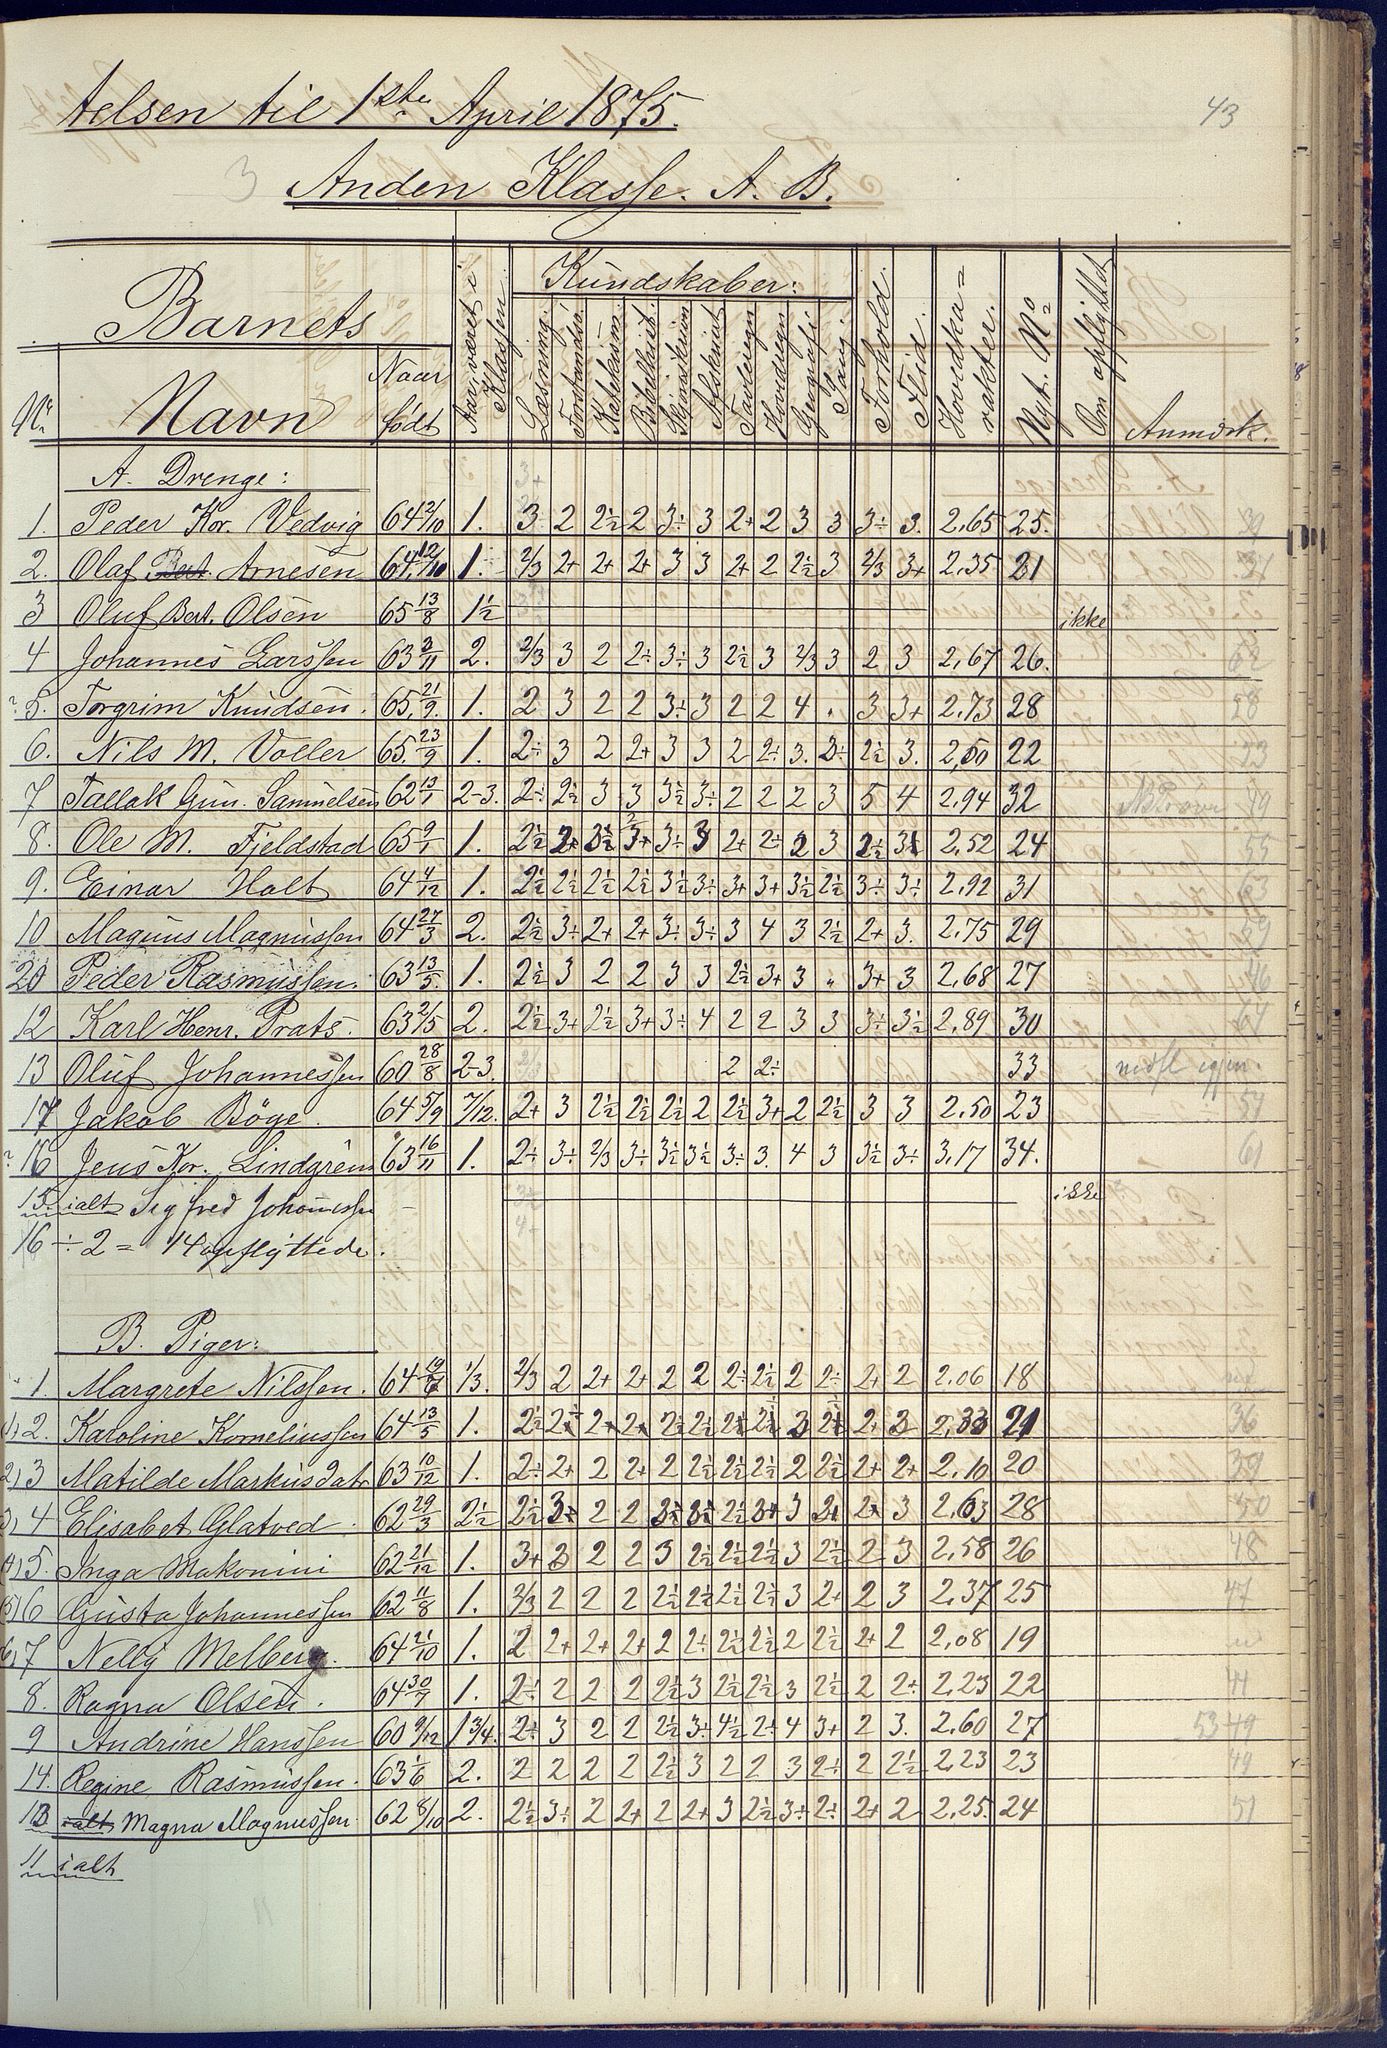 telsen til 1ste April 1875.
43
3
Anden Klasse. A. B.
Barnets
Kundskaber:
No
Navn
Naar født
Aar, været i Klassen.
Læsning.
Forstandsø.
Katekism.
Bibelhist.
Skjønskrivn
Afskrivt
Tavleregn
Hovdregn
Geografi
Sang.
Forhold.
Flid.
Hovedkarakter.
Nyt. No
Om opflyttet
Anmærk.
A. Drenge:
1. Peder Kor. Vedvig 64 2/10 1. 3 2 2½ 2 3÷ 3 2+ 2 3 3 3÷ 3. 2,65 25.
2. Olaf Bert. Arnesen 64 12/10 1. 2/3 2+ 2+ 2+ 3 3 2+ 2 2½ 3 2/3 3+ 2,35 21
3 Oluf Bert. Olsen 65 13/8 1½ ikke
4 Johannes Larssen 63 3/11 2. 2/3 3 2 2÷ 3÷ 3 2½ 3 2/3 3 2 3 2,67 26.
5. Torgrim Knudsen. 65 21/9 1. 2 3 2 2 3÷ 3 2 2 4 „ 3 3+ 2,73 28
6. Nils M. Voller 65. 23/9 1. 2÷ 3 2 2+ 3 3 2 2÷ 3. 2÷ 2½ 3. 2,50 22
7 Tallak Gun. Samuelsen 62 13/1 2-3. 2÷ 2½ 3 3 3½ 3÷ 2 2 2 3 5 4 2,94 32
8. Ole M. Fjeldstad 65 9/1 1. 2½ 2+ 3½ 3+ 3÷ 3 2+ 2÷ 2 3 2½ 3 2,52 24
9. Einar Holt 64 4/12 1. 2½ 2½ 2½ 2½ 3½ 3÷ 3+ 3+ 3½ 2½ 3÷ 3÷ 2,92 31
10 Magnus Magnussen 64 27/3 2. 2½ 3÷ 2+ 2+ 3÷ 3÷ 3 4 3 2½ 2+ 3. 2,75 29
20 Peder Rasmussen. 63 13/5. 1. 2½ 3 2 2 3 3 2½ 3+ 3 „ 3+ 3 2,68 27
12 Karl Henr. Prats. 63 2/5 2. 2½ 3+ 2½ 3+ 3÷ 4 2 2 3 3 3÷ 3½ 2,89 30
13 Oluf Johannessen 60 28/8 2-3. 2 2÷ 33
17 Jakob Böge. 64 5/9 7/12. 2+ 3 2½ 2½ 2½ 2 2½ 3+ 2 2½ 3 3 2,50 23
16 Jens Kor. Lindgren 63 16/11 1. 2÷ 3÷ 2/3 3÷ 3½ 3½ 3÷ 3. 4 3 3½ 3÷ 3,17 34.
15. ialt Sigfred Johannessen ikke
16 ÷ 2 = 14 opflyttede.
B. Piger:
1. Margrete Nilssen. 64 19/6 1/3. 2/3 2 2+ 2+ 2 2 2÷ 2½ 2 2÷ 2+ 2 2.06 18
2. Karoline Korneliussen 64 13/5 1. 2½ 2+ 2+ 2+ 2½ 2½ 2½ 2½ 3 2½ 2+ 3 2,33 21
3 Matilde Markusdatr 63 10/12 1. 2÷ 2+ 2 2+ 2 2½ 2½ 2½ 2 2½ 2+ 2+ 2,10 20
4 Elisabet Glatved. 62 29/3 2½ 2½ 3+ 2 2 3½ 3½ 2½ 3+ 3 2+ 2+ 3 2,63 28
5. Inga Makonini 62 21/12 1. 3+ 3 2 2 3 2½ 2½ 2½ 3 2½ 2 3 2,58 26
6 Gusta Johannessen 62 11/8 1. 2/3 2 2 2 2½ 2½ 2½ 2½ 3 2+ 2 3 2,37 25
7 Nelly Melberg. 64 21/10 1. 2 2+ 2+ 2+ 2 2÷ 2½ 2½ 2 2½ 2+ 2 2,08 19
8. Ragna Olsen. 64 30/7 1. 2÷ 2 2 2 2½ 3 2½ 2½ 3 2½ 2 2÷ 2,23 22
9 Andrine Hanssen 60 9/12 1 3/4. 2÷ 3 2 2 2½ 3÷ 4½ 2÷ 4 3+ 2 3. 2,60 27 53 49
14. Regine Rasmussen. 63 1/6 2. 2 2 2 2 2½ 3 2 2 3 2÷ 2 2½ 2,23 23 49
13 ialt Magna Magnussen 62 8/10 2. 2½ 3÷ 2 2+ 2 2+ 3 2½ 3÷ 2÷ 2+ 2 2,25. 24 51
11 ialt